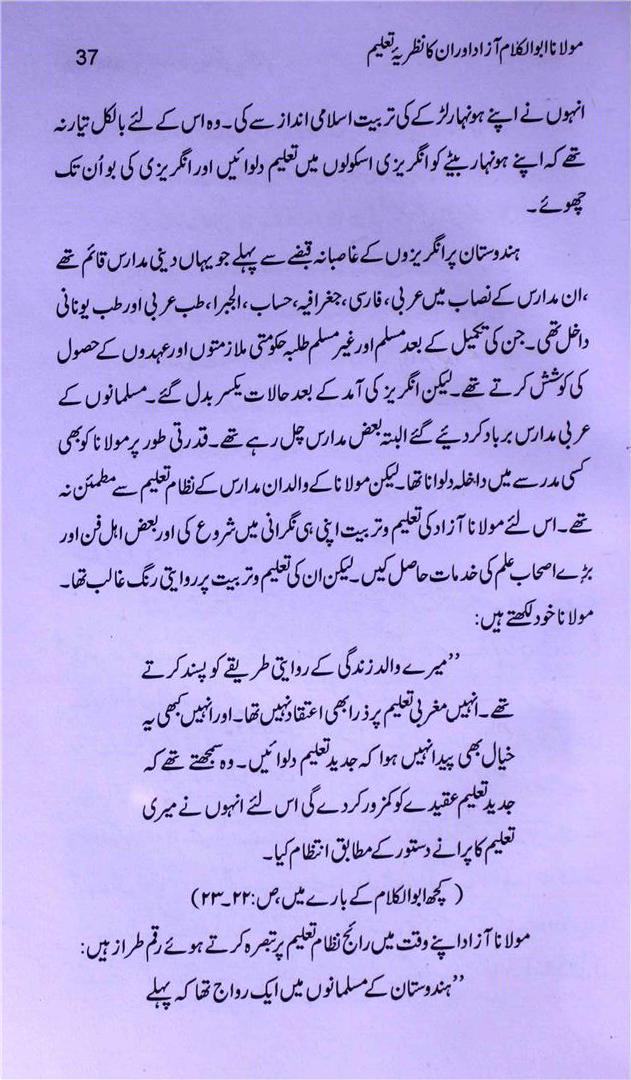 مولانا ابوالکلام آزاد اور ان کا نظریۂ تعلیم 37
انہوں نے اپنے ہونہار لڑکے کی تربیت اسلامی انداز سے کی۔ وہ اس کے لئے بالکل تیار نہ
تھے کہ اپنے ہونہار بیٹے کو انگریزی اسکولوں میں تعلیم دلوائیں اور انگریزی کی بو اُن تک
چھوئے۔
ہندوستان پر انگریزوں کے غاصبانہ قبضے سے پہلے جو یہاں دینی مدارس قائم تھے
،ان مدارس کے نصاب میں عربی، فارسی، جغرافیہ، حساب، الجبرا، طب عربی اور طب یونانی
داخل تھی۔ جن کی تکمیل کے بعد مسلم اور غیر مسلم طلبہ حکومتی ملازمتوں اور عہدوں کے حصول
کی کوشش کرتے تھے۔ لیکن انگریز کی آمد کے بعد حالات یکسر بدل گئے۔ مسلمانوں کے
عربی مدارس برباد کر دیئے گئے البتہ بعض مدارس چل رہے تھے۔ قدرتی طور پر مولانا کو بھی
کسی مدرسے میں داخلہ دلوانا تھا۔ لیکن مولانا کے والد ان مدارس کے نظام تعلیم سے مطمئن نہ
تھے۔ اس لئے مولانا آزاد کی تعلیم و تربیت اپنی ہی نگرانی میں شروع کی اور بعض اہل فن اور
بڑے اصحاب علم کی خدمات حاصل کیں۔ لیکن ان کی تعلیم و تربیت پر روایتی رنگ غالب تھا۔
مولانا خود لکھتے ہیں:
’’میرے والد زندگی کے روایتی طریقے کو پسند کرتے
تھے۔ انہیں مغربی تعلیم پر ذرا بھی اعتقاد نہیں تھا۔ اور انہیں کبھی یہ
خیال بھی پیدا نہیں ہوا کہ جدید تعلیم دلوائیں۔ وہ سمجھتے تھے کہ
جدید تعلیم عقیدے کو کمزور کر دے گی اس لئے انہوں نے میری
تعلیم کا پرانے دستور کے مطابق انتظام کیا۔
( کچھ ابوالکلام کے بارے میں، ص: ۲۲۔۲۳)
مولانا آزاد اپنے وقت میں رائج نظام تعلیم پر تبصرہ کرتے ہوئے رقم طراز ہیں:
’’ہندوستان کے مسلمانوں میں ایک رواج تھا کہ پہلے